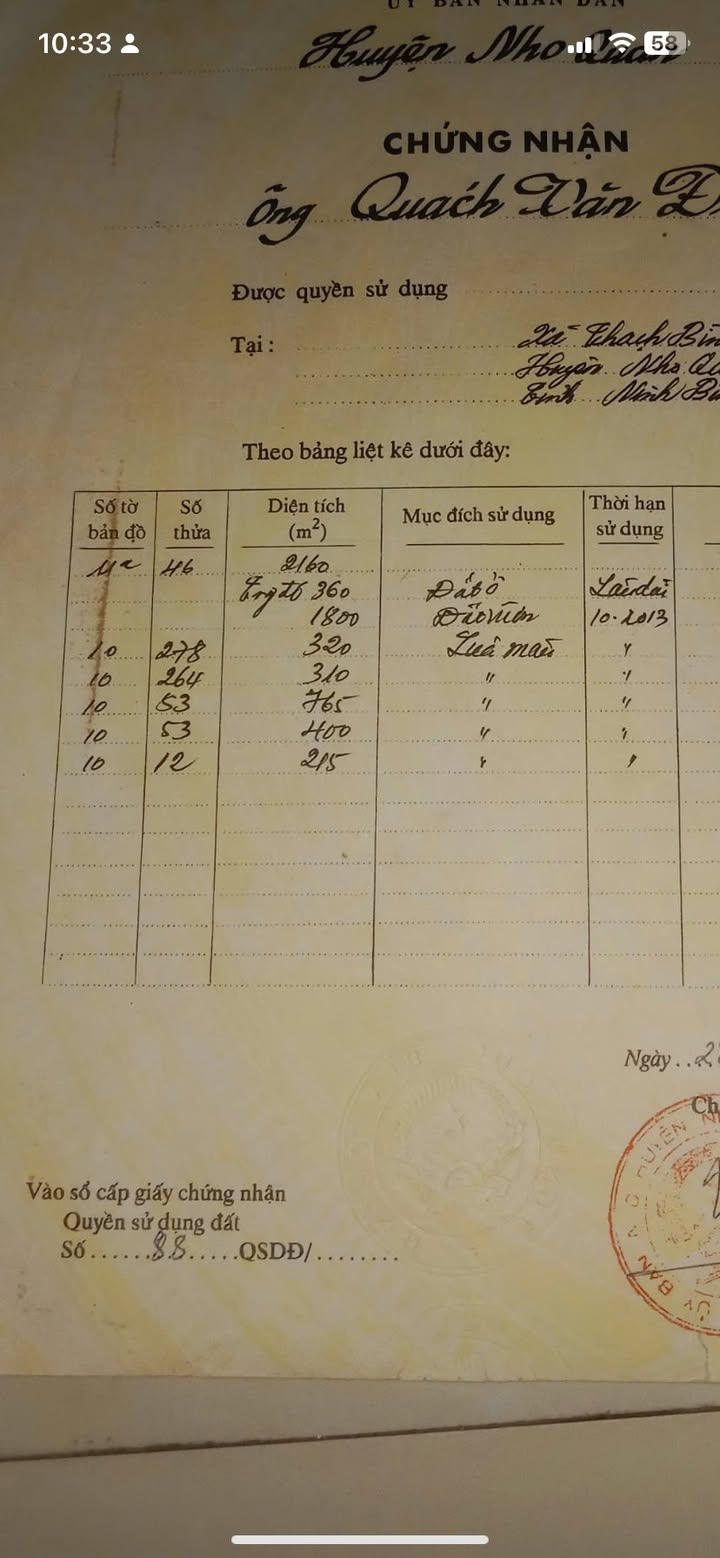 10:33
58
ỦY BAN NHÂN DÂN
Huyện Nho Quan
CHỨNG NHẬN
Ông Quách Văn
Được quyền sử dụng
Tại : Xã Thạch Bìn
Huyện Nho Qu
Tỉnh Ninh Bì
Theo bảng liệt kê dưới đây:
Số tờ bản đồ Số thửa Diện tích (m²) Mục đích sử dụng Thời hạn sử dụng
46 2160
360 Đất ở Lâu dài
1800 Đất vườn 10.2013
10 278 320 Lúa màu "
10 264 310 " "
10 53 765 " "
10 53 400 " "
10 12 215 " "
Ngày
Ch
Vào sổ cấp giấy chứng nhận
Quyền sử dụng đất
Số......88.....QSDĐ/........
ỦY BAN
HUYỆN N